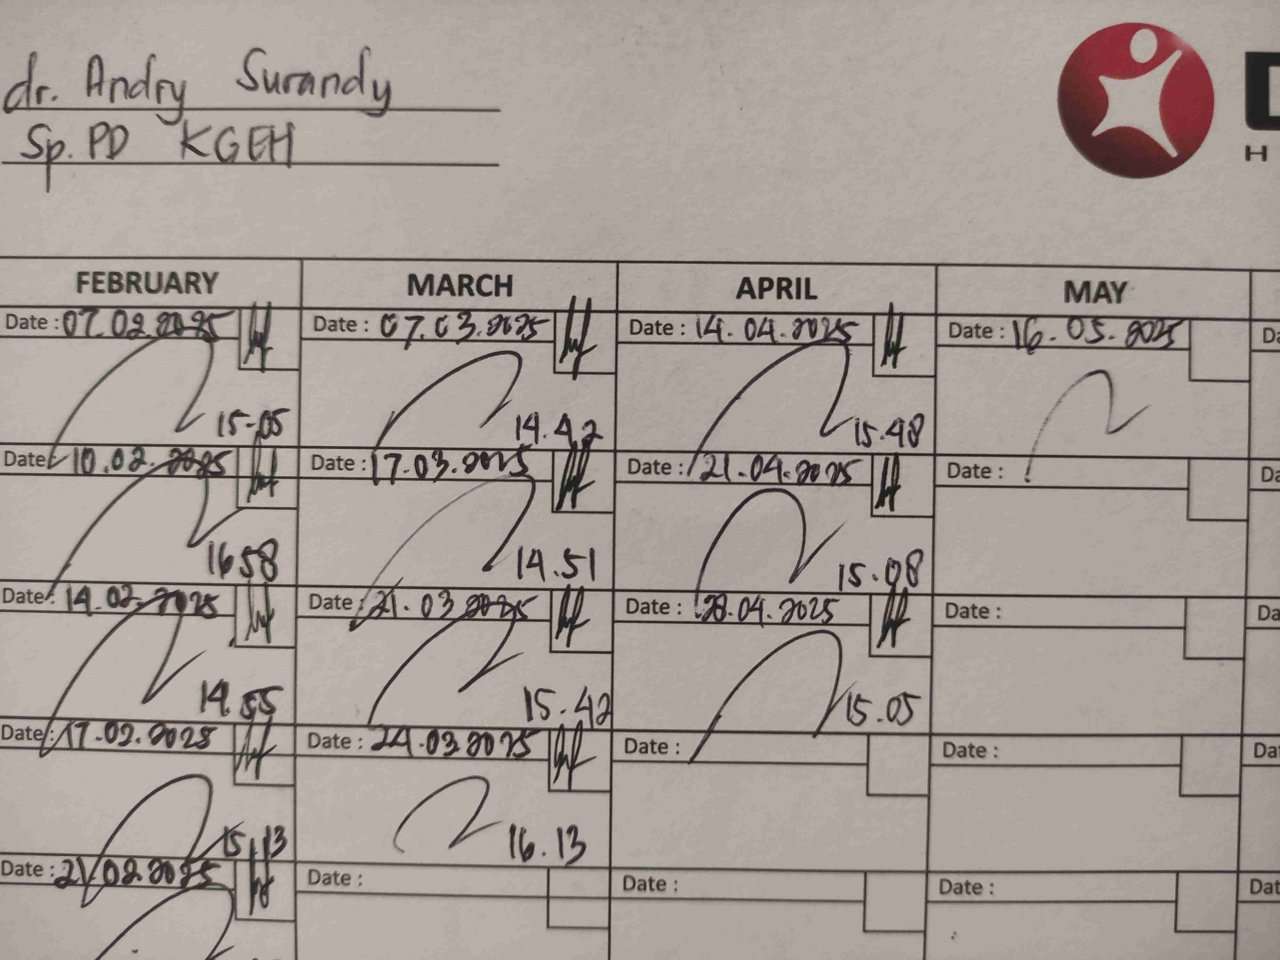 dr. Andry Surandy
Sp. PD KGEH
H
FEBRUARY MARCH APRIL MAY
Date : 07.02.2025 Date : 07.03.2025 Date : 14.04.2025 Date : 16.05.2025 Da
15-05 14.42 15.48
Date : 10.02.2025 Date : 17.03.2025 Date : 21.04.2025 Date : Da
1658 14.51 15.08
Date : 14.02.2025 Date : 21.03 2025 Date : 28.04.2025 Date : Da
14.55 15.42 15.05
Date : 17.02.2025 Date : 24.03.2025 Date : Date : Da
15.13 16.13
Date : 21.02.2025 Date : Date : Date : Dat